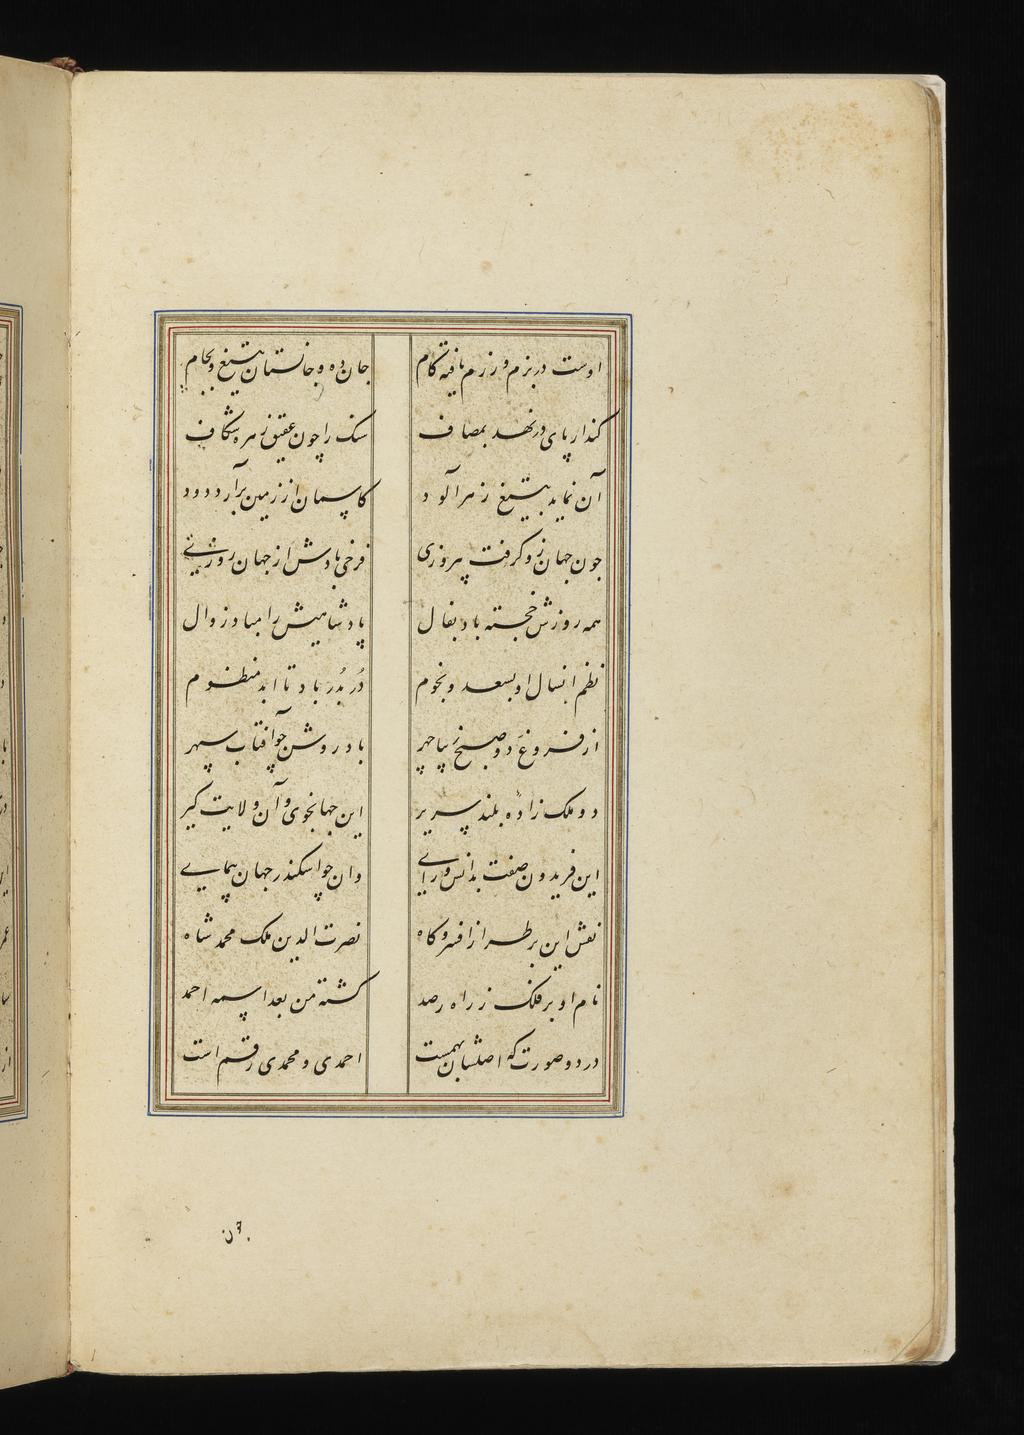 اوست در بزم و رزم یافته کام جان ده و جان ستان بتیغ و بجام
گذار پای در نهد بمصاف سنک را چون عقیق زهره شکاف
آن نماید بتیغ زهرآلود کاسمان از زمین برآرد دود
چون جهان زو گرفت پیروزی فرخی بادش از جهان روزی
همه روزش خجسته باد بفال پادشاهیش را مباد زوال
نظم انسال او بسعد و نجوم دُر بدُر باد تا ابد منظوم
از فروغ دو صبح زیبا چهر باد روشن چو آفتاب سپهر
دو ملک زاده بلند سریر این جهانجوی و آن ولایت کیر
این فریدون صفت بدانس و رای وان چو اسکندر جهان پیمای
نقش این بر طراز افسر و کاه نصرت الدین ملک محمد شاه
نام او بر فلک ز راه رصد کشته من بعد اسمه احمد
در دو صورت که اصلشان بهمست احمدی و محمدی رقم است